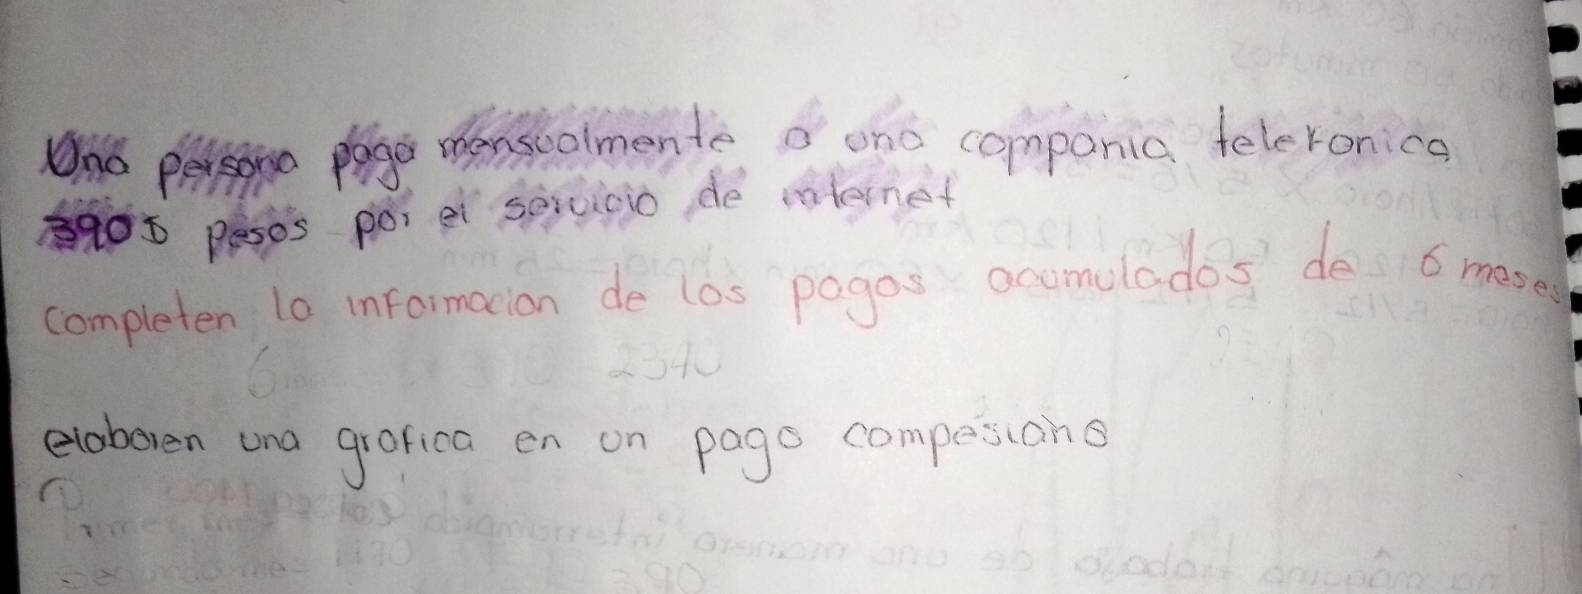 Una persona paga mensualmente a una compania telefonica
390$ pesos por el servicio de internet
completen la informacion de los pagos acumulados de 6 meses
6 2340
elaboren una grafica en un pago compesiano